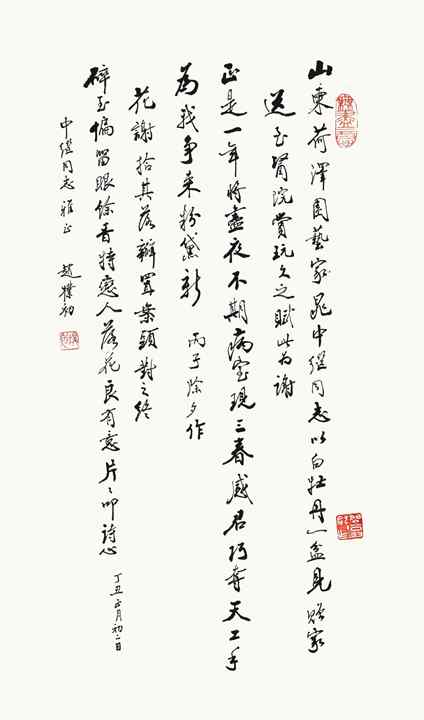 山東荷澤園藝家晁中繼同志以白牡丹一盆見贈家
送至醫院賞玩久之賦此为謝
正是一年將盡夜不期病室現三春感君巧奪天工手
為我爭來粉黛新 丙子除夕作
花謝拾其落瓣置案頭對之終
碎玉偏留眼餘香特戀人落花良有意片〻叩詩心 丁丑正月初二日
中繼同志雅正 趙樸初